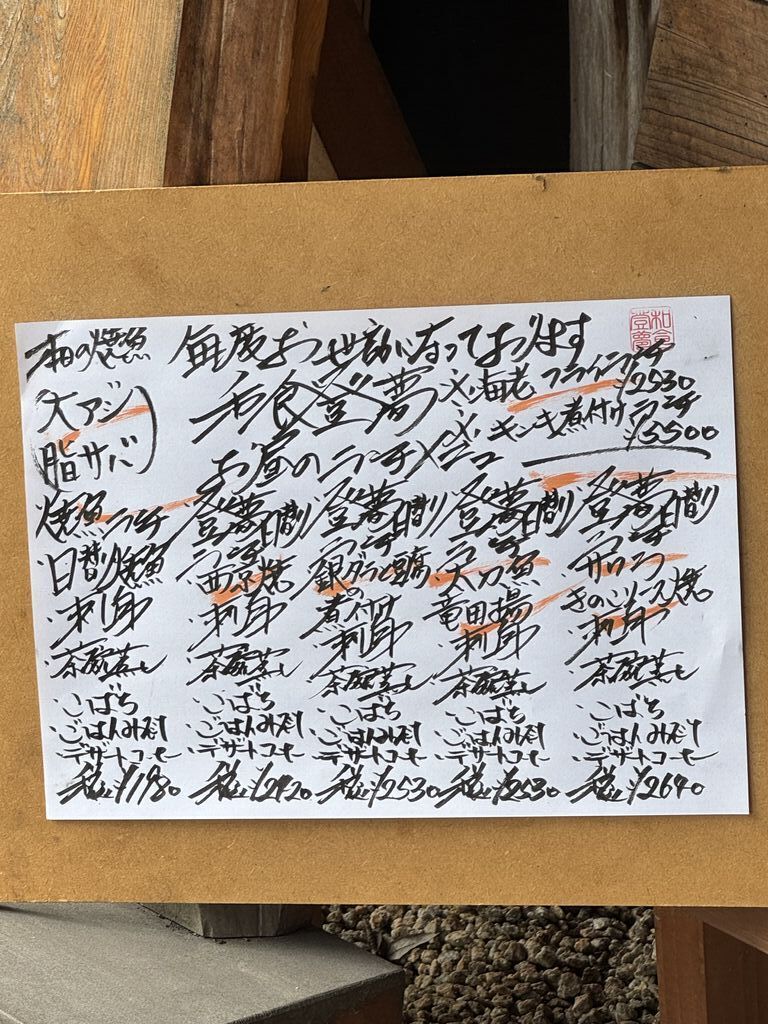 本日の焼魚
(大アジ
脂サバ)
毎度お世話になっております
和食 登夢
お昼のランチメニュー
和食
登夢
※海老フライランチ
¥2530
※キンキ煮付けランチ
¥5500
焼魚ランチ
日替り焼魚
・刺身
・茶碗蒸し
・こばち
・ごはんみそ汁
・デザートコーヒー
税込¥1980
登夢日替り
ランチ
・西京焼
・刺身
・茶碗蒸し
・こばち
・ごはんみそ汁
・デザートコーヒー
税込¥2420
登夢日替り
ランチ
・銀ダラと豆腐
の
煮付け
・刺身
・茶碗蒸し
・こばち
・ごはんみそ汁
・デザートコーヒー
税込¥2530
登夢日替り
ランチ
・太刀魚
竜田揚
・刺身
・茶碗蒸し
・こばち
・ごはんみそ汁
・デザートコーヒー
税込¥2530
登夢日替り
ランチ
・サワラ
きのこソース焼
・刺身
・茶碗蒸し
・こばち
・ごはんみそ汁
・デザートコーヒー
税込¥2640